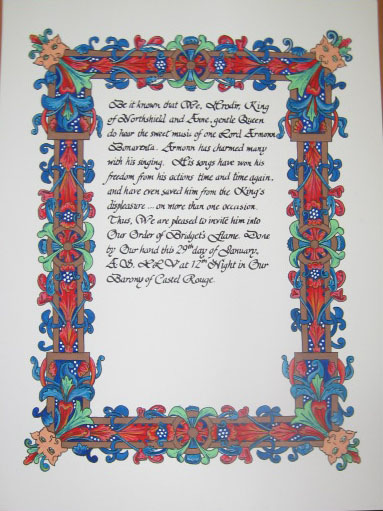 Be it known that We, Hrodir, King
of Northshield and Anne, gentle Queen
do hear the sweet music of one Lord Armonn
Bonaventa. Armonn has charmed many
with his singing. His songs have won his
freedom from his actions time and time again,
and have even saved him from the King's
displeasure ... on more than one occasion.
Thus, We are pleased to invite him into
Our Order of Bridget's Flame. Done
by Our hand this 29th day of January,
A.S. XLV at 12th Night in Our
Barony of Castel Rouge.